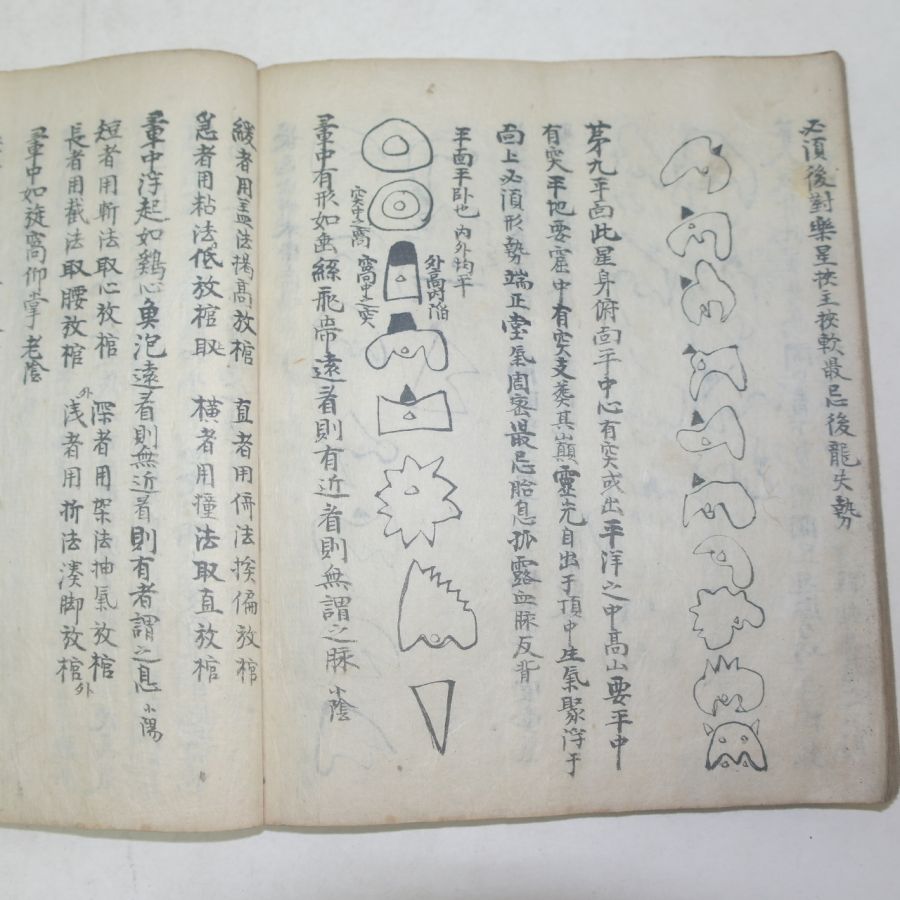 必須後對樂星按主按軟最忌後龍失勢
第九平面此星身俯面平中心有突或出平洋之中高山要平中
有突平地要窟中有突支葬其巔靈光自出于頂中生氣聚浮于
面上必須形勢端正堂氣周密最忌胎息孤露血脉反背
平面平卧也 内外均平
外高内陷
突中之窩
窩中之突
暈中有形如幽絲飛帶遠看則有近看則無謂之脉 小陰
緩者用盖法揭高放棺 直者用倚法挨偏放棺
急者用粘法低放棺取 橫者用撞法取直放棺
暈中浮起如鷄心魚泡遠看則無近看則有者謂之息 小陽
短者用斬法取心放棺 深者用架法抽氣放棺
長者用截法取腰放棺外 浅者用折法湊脚放棺外
暈中如旋窩仰掌 老陰